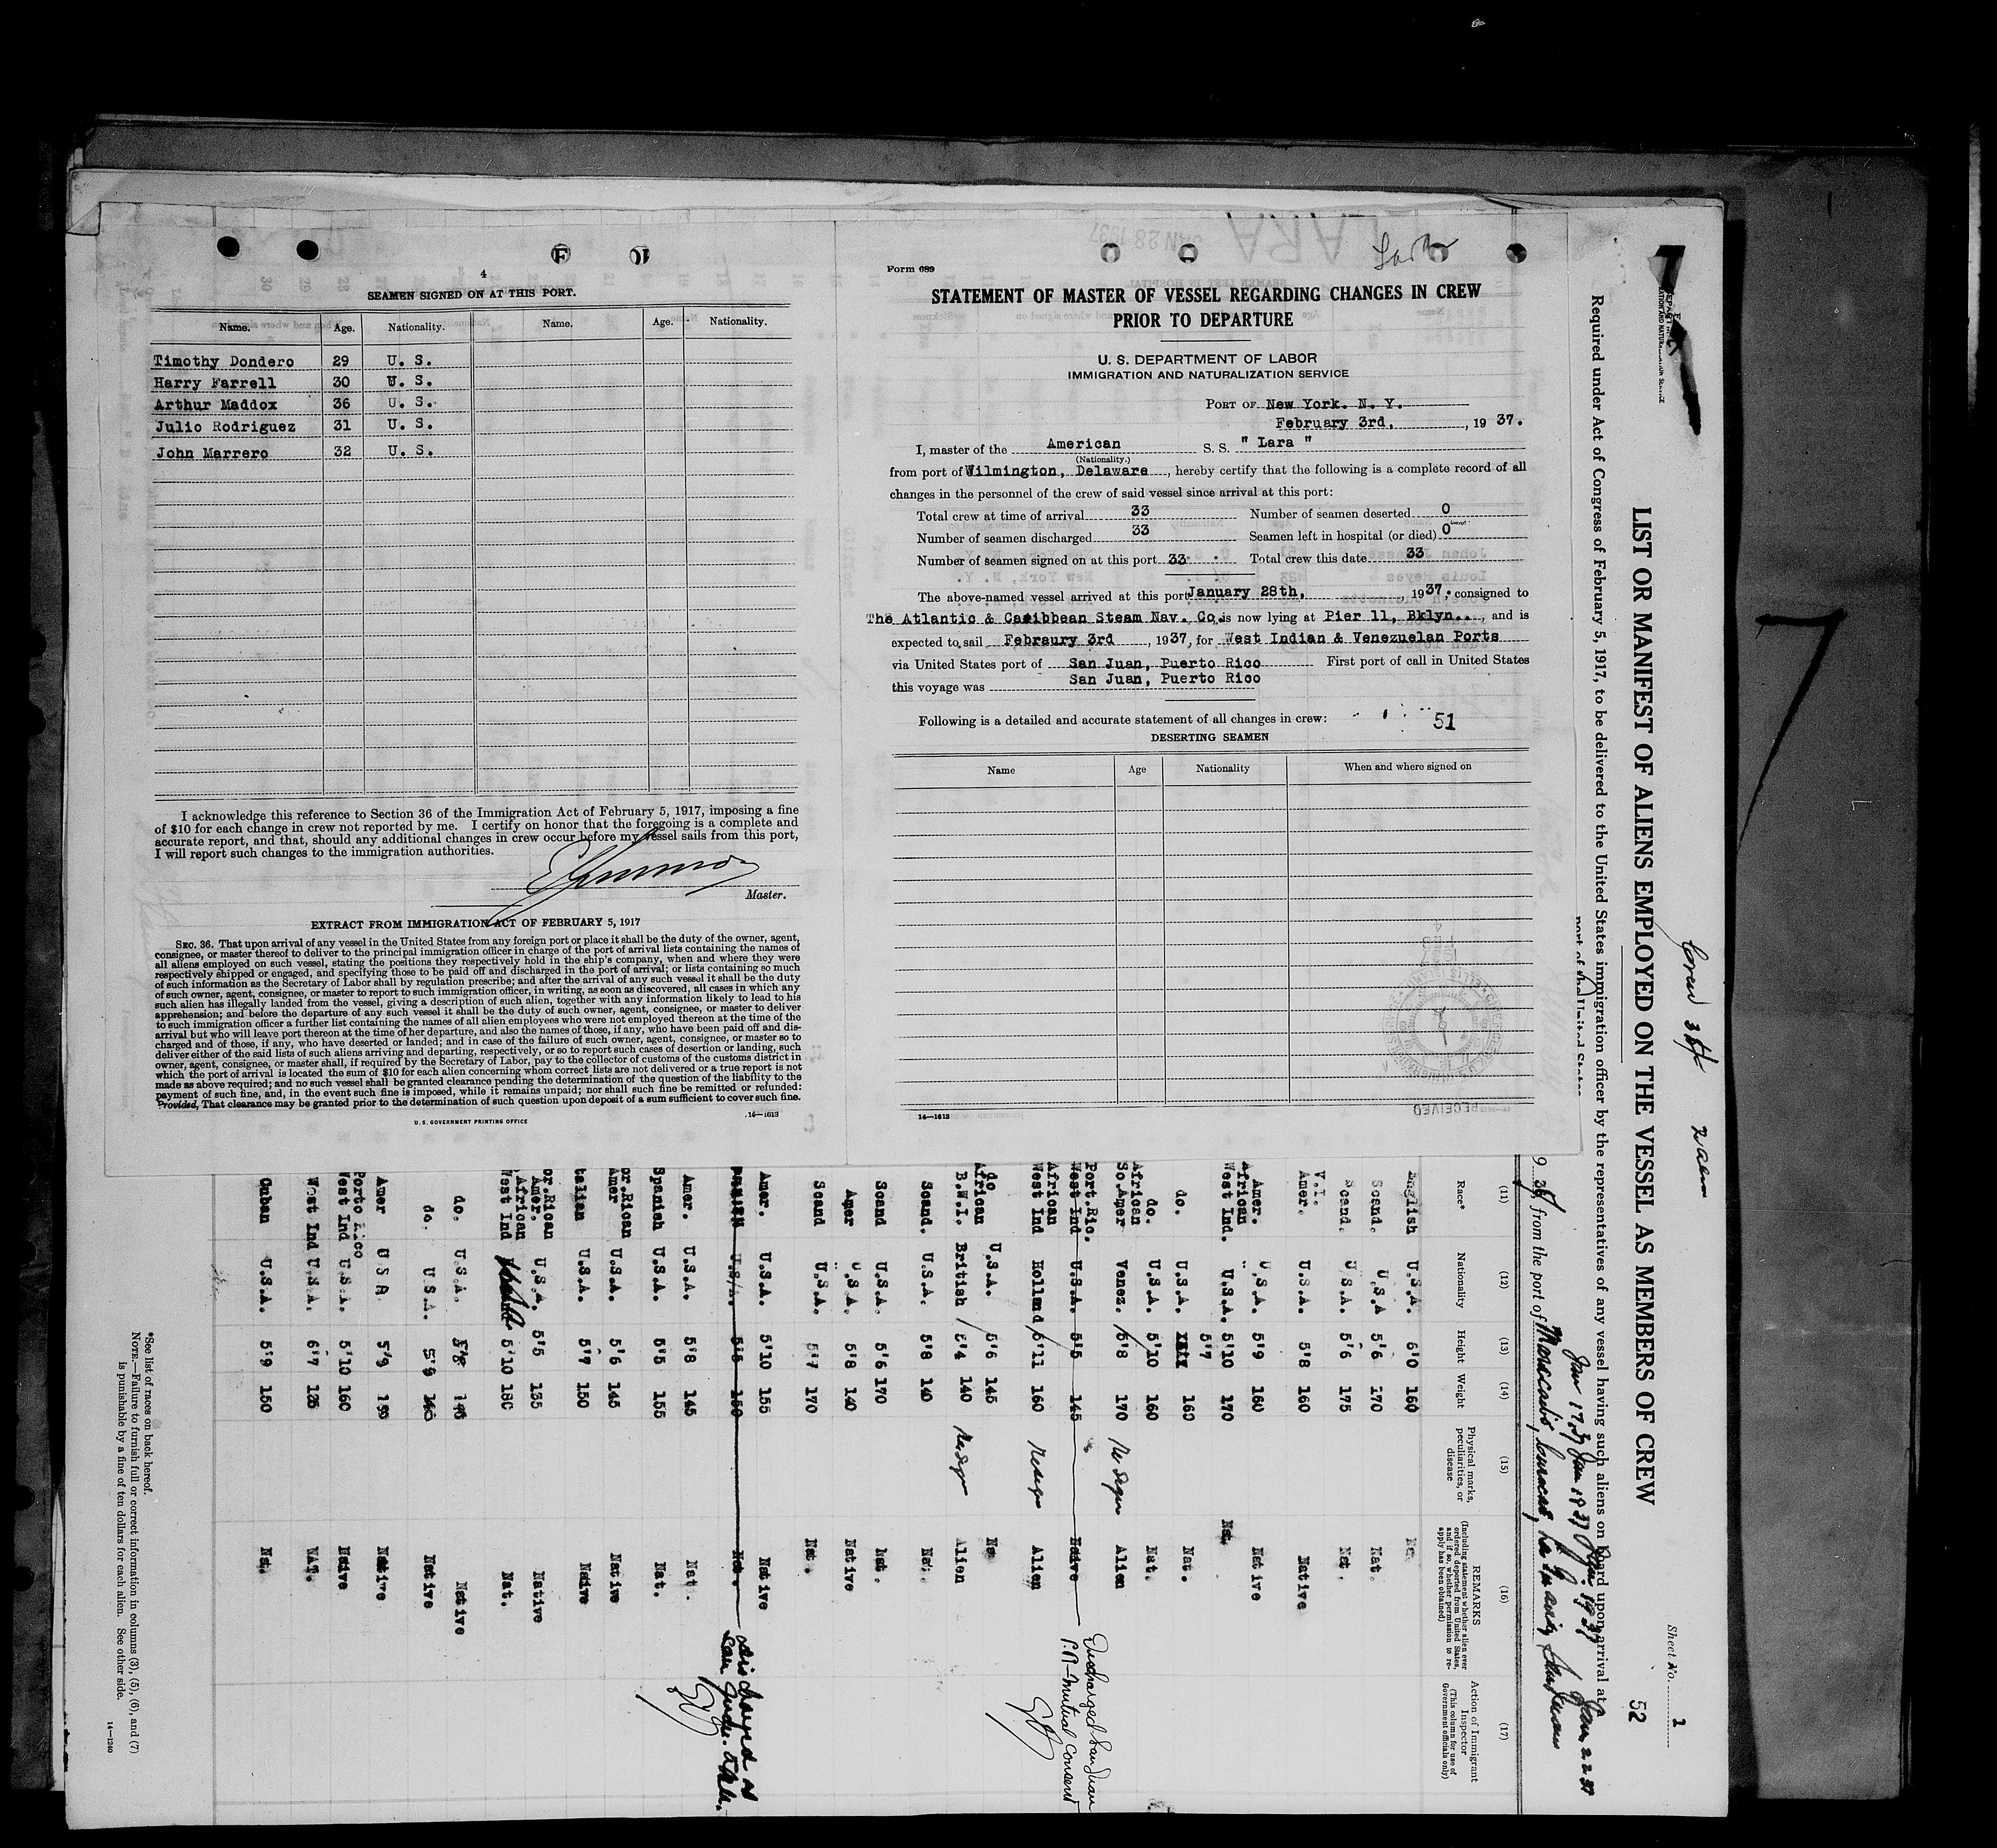 4
SEAMEN SIGNED ON AT THIS PORT.
Name. Age. Nationality. Name. Age. Nationality.
Timothy Dondero 29 U. S.
Harry Farrell 30 U. S.
Arthur Maddox 36 U. S.
Julio Rodriguez 31 U. S.
John Marrero 32 U. S.
I acknowledge this reference to Section 36 of the Immigration Act of February 5, 1917, imposing a fine
of $10 for each change in crew not reported by me. I certify on honor that the foregoing is a complete and
accurate report, and that, should any additional changes in crew occur before my vessel sails from this port,
I will report such changes to the immigration authorities.
Master.
EXTRACT FROM IMMIGRATION ACT OF FEBRUARY 5, 1917
SEC. 36. That upon arrival of any vessel in the United States from any foreign port or place it shall be the duty of the owner, agent,
consignee, or master thereof to deliver to the principal immigration officer in charge of the port of arrival lists containing the names of
all aliens employed on such vessel, stating the positions they respectively hold in the ship's company, when and where they were
respectively shipped or engaged, and specifying those to be paid off and discharged in the port of arrival; or lists containing so much
of such information as the Secretary of Labor shall by regulation prescribe; and after the arrival of any such vessel it shall be the duty
of such owner, agent, consignee, or master to report to such immigration officer, in writing, as soon as discovered, all cases in which any
such alien has illegally landed from the vessel, giving a description of such alien, together with any information likely to lead to his
apprehension; and before the departure of any such vessel it shall be the duty of such owner, agent, consignee, or master to deliver
to such immigration officer a further list containing the names of all alien employees who were not employed thereon at the time of the
arrival but who will leave port thereon at the time of her departure, and also the names of those, if any, who have been paid off and dis-
charged and of those, if any, who have deserted or landed; and in case of the failure of such owner, agent, consignee, or master so to
deliver either of the said lists of such aliens arriving and departing, respectively, or so to report such cases of desertion or landing, such
owner, agent, consignee, or master shall, if required by the Secretary of Labor, pay to the collector of customs of the customs district in
which the port of arrival is located the sum of $10 for each alien concerning whom correct lists are not delivered or a true report is not
made as above required; and no such vessel shall be granted clearance pending the determination of the question of the liability to the
payment of such fine, and, in the event such fine is imposed, while it remains unpaid; nor shall such fine be remitted or refunded:
Provided, That clearance may be granted prior to the determination of such question upon deposit of a sum sufficient to cover such fine.
U. S. GOVERNMENT PRINTING OFFICE
14—1613
Form 689
STATEMENT OF MASTER OF VESSEL REGARDING CHANGES IN CREW
PRIOR TO DEPARTURE
U. S. DEPARTMENT OF LABOR
IMMIGRATION AND NATURALIZATION SERVICE
PORT OF New York. N. Y.
February 3rd, , 19 37.
I, master of the American S. S. " Lara "
(Nationality.)
from port of Wilmington, Delaware, hereby certify that the following is a complete record of all
changes in the personnel of the crew of said vessel since arrival at this port:
Total crew at time of arrival 33 Number of seamen deserted 0
Number of seamen discharged 33 Seamen left in hospital (or died) 0
Number of seamen signed on at this port 33 Total crew this date 33
The above-named vessel arrived at this port January 28th, , 1937, consigned to
The Atlantic & Caribbean Steam Nav. Co. is now lying at Pier 11, Bklyn..., and is
expected to sail Febraury 3rd , 1937, for West Indian & Venezuelan Ports
via United States port of San Juan, Puerto Rico First port of call in United States
this voyage was San Juan, Puerto Rico
Following is a detailed and accurate statement of all changes in crew: 51
DESERTING SEAMEN
Name Age Nationality When and where signed on
14—1613
RECEIVED
7
Sheet No. 1
52
LIST OR MANIFEST OF ALIENS EMPLOYED ON THE VESSEL AS MEMBERS OF CREW
Required under Act of Congress of February 5, 1917, to be delivered to the United States immigration officer by the representatives of any vessel having such aliens on board upon arrival at
port of the United States
from the port of Maracaibo, Curacao, La Guaira, San Juan
Jan 17.37 Jan 18 37 Jan 19 37 Jan 22 37
(11) (12) (13) (14) (15) (16) (17)
Race* Nationality Height Weight Physical marks, peculiarities, or disease REMARKS (Including statement whether alien ever ordered deported from United States, and if so, whether permission to re-apply has been obtained) Action of Immigrant Inspector (This column for use of Government officials only)
English U.S.A. 160
Scand. U.S.A 5'6 170 Nat.
Scand. U.S.A. 5'6 175 Nat.
V.I. Amer. U.S.A. 5'8 160 Native
Amer. U.S.A. 5'9 160 Native
African West Ind. U.S.A. 5'10 170 Nat.
do. U.S.A. 5'7 160 Nat.
do. U.S.A. 5'10 160 Nat.
African So.Amer Venez. 5'8 170 Alien
Port.Ric. West Ind U.S.A. 5'5 145 Naive Discharged San Juan P.R - mutual consent
African West Ind Holland 5'11 160 Alien
do U.S.A. 5'6 145
African B.W.I. British 5'4 140 Alien
Scand. U.S.A. 5'8 140 Nat.
Scand U.S.A. 5'6 170 Nat.
Amer U.S.A. 5'8 140 Native
Scand U.S.A. 5'7 170 Nat.
Amer. U.S.A. 5'10 155 Native
U.S.A. 5'5 150 Nat. discharged at San Juan.
Amer. U.S.A. 5'8 145 Nat.
Spanish U.S.A. 5'5 155 Nat.
or.Rican Amer U.S.A. 5'6 145 Native
talian U.S.A. 5'7 150 Naive
or.Rican Amer. U.S.A. 5'5 135 Native
African West Ind 5'10 180 Nat.
do. U.S.A. 5'8 Native
do. U.S.A. 5'9 Native
Amer U S A 5'9 Native
Porto Rico West Ind U.S.A. 5'10 160 Naive
West Ind U.S.A. 6'7 NAT.
Cuban U.S.A. 5'9 150 Nat.
*See list of races on back hereof.
NOTE.—Failure to furnish full or correct information in columns (3), (5), (6), and (7)
is punishable by a fine of ten dollars for each alien. See other side.
14—1240